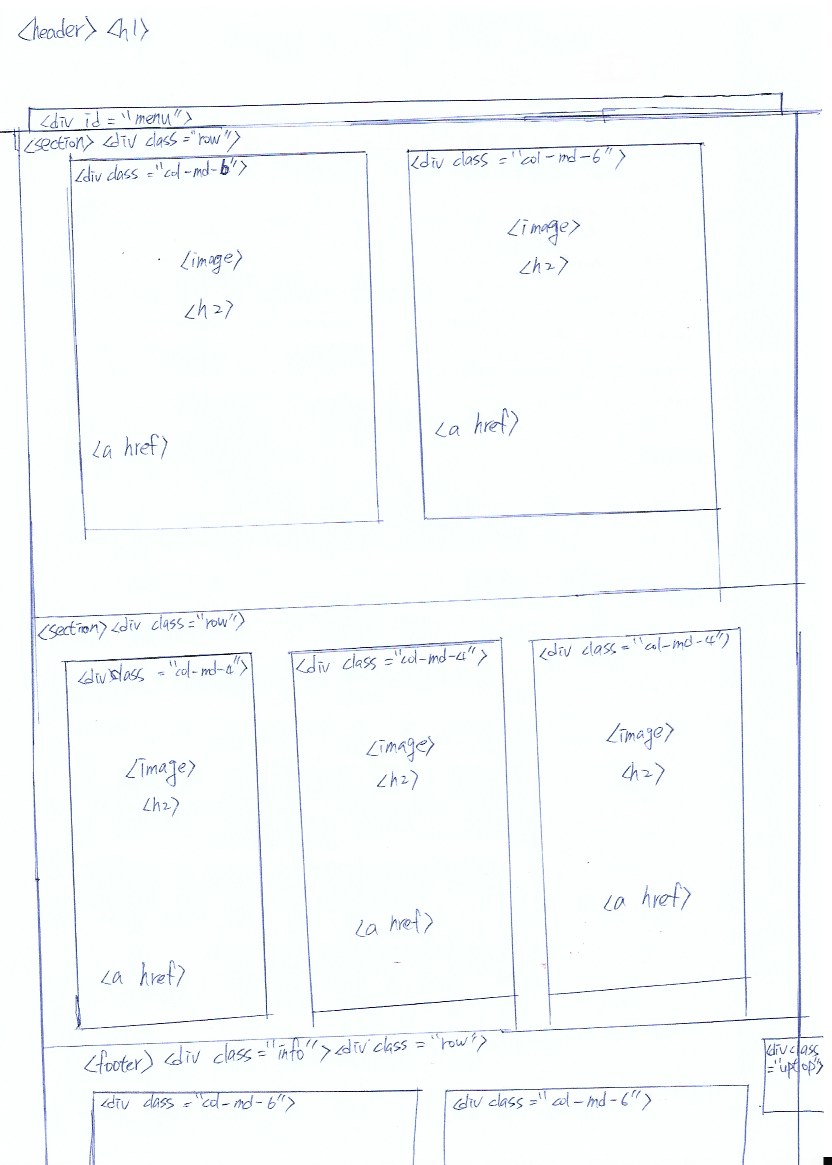 <header> <h1>
<div id = "menu">
<section> <div class = "row">
<div class = "col-md-6">
<image>
<h2>
<a href>
<div class = "col-md-6">
<image>
<h2>
<a href>
<section> <div class = "row">
<div class = "col-md-4">
<image>
<h2>
<a href>
<div class = "col-md-4">
<image>
<h2>
<a href>
<div class = "col-md-4">
<image>
<h2>
<a href>
<footer> <div class = "info"> <div class = "row">
<div class
= "uptop">
<div class = "col-md-6">
<div class = "col-md-6">